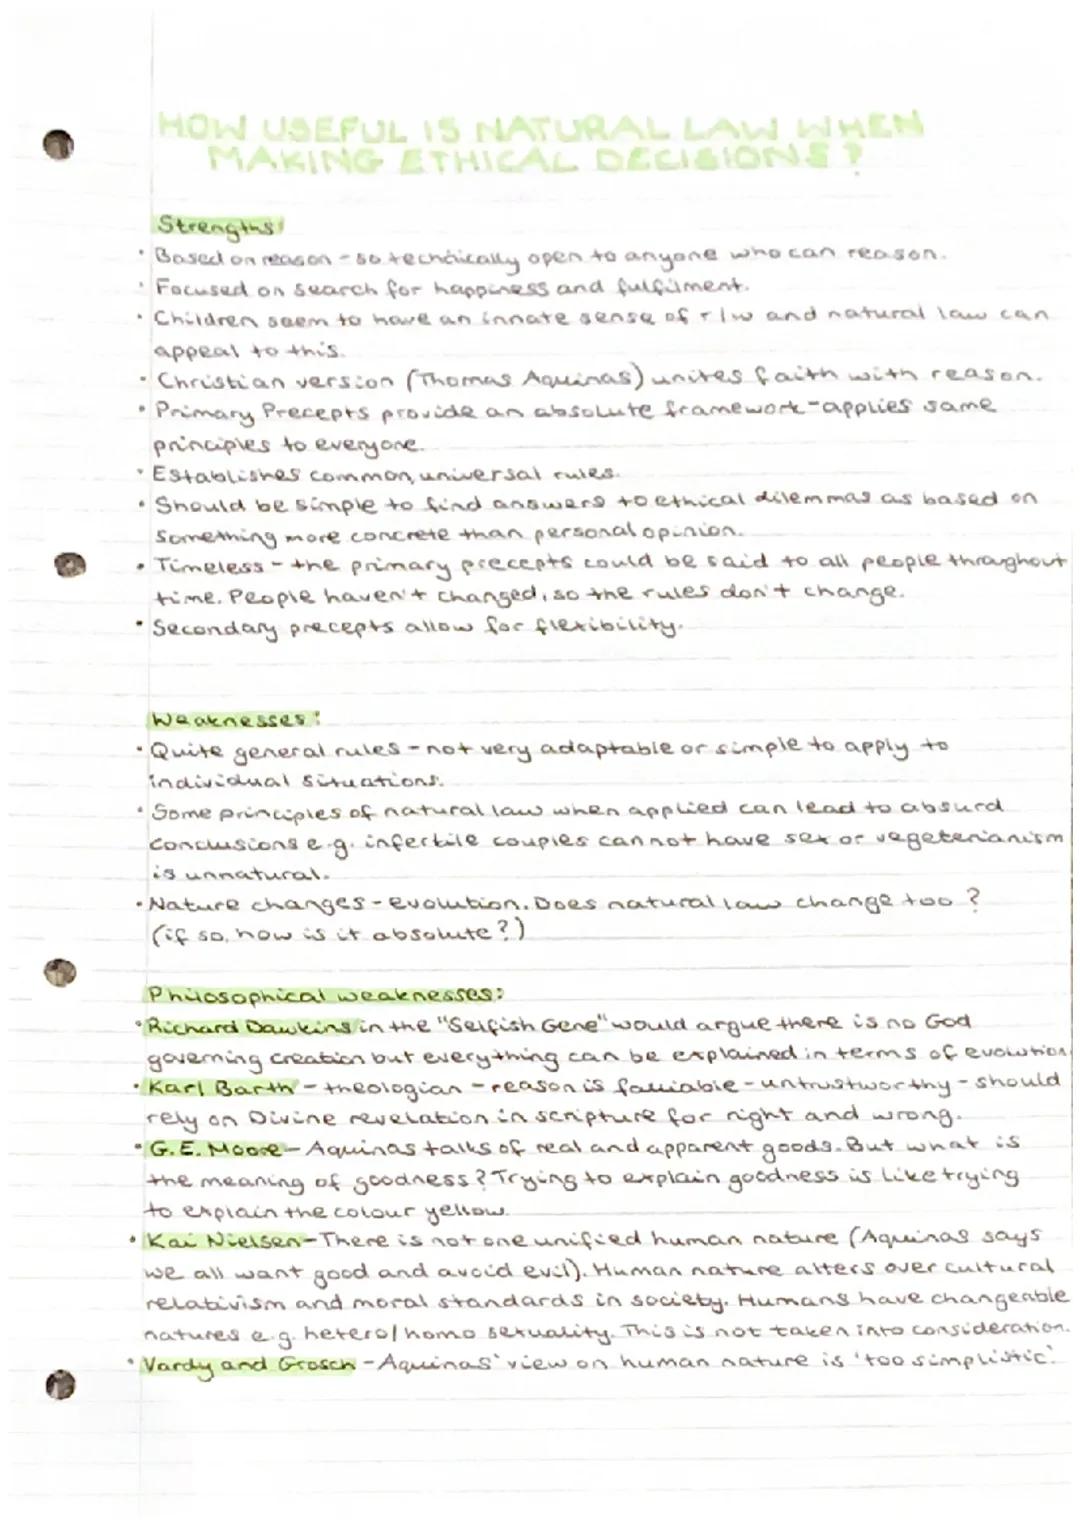 HOW USEFUL IS NATURAL LAW WHEN
MAKING ETHICAL DECISIONS?
Strengths:
• Based on reason - so technically open to anyone who can reason.
• Focused on search for happiness and fulfilment.
• Children seem to have an innate sense of r/w and natural law can
appeal to this.
• Christian version (Thomas Aquinas) unites faith with reason.
• Primary Precepts provide an absolute framework - applies same
principles to everyone.
• Establishes common, universal rules.
• Should be simple to find answers to ethical dilemmas as based on
something more concrete than personal opinion.
• Timeless - the primary precepts could be said to all people throughout
time. People haven't changed, so the rules don't change.
• Secondary precepts allow for flexibility.
Weaknesses:
• Quite general rules - not very adaptable or simple to apply to
individual situations.
• Some principles of natural law when applied can lead to absurd
conclusions e.g. infertile couples cannot have sex or vegetenianism
is unnatural.
• Nature changes - evolution. Does natural law change too?
(if so, how is it absolute?)
Philosophical weaknesses:
• Richard Dawkins in the "Selfish Gene" would argue there is no God
governing creation but everything can be explained in terms of evolution
• Karl Barth - theologian - reason is falliable - untrustworthy - should
rely on Divine revelation in scripture for right and wrong.
• G.E. Moore - Aquinas talks of real and apparent goods. But what is
the meaning of goodness? Trying to explain goodness is like trying
to explain the colour yellow.
• Kai Nielsen - There is not one unified human nature (Aquinas says
we all want good and avoid evil). Human nature alters over cultural
relativism and moral standards in society. Humans have changeable
natures e.g. hetero/homo sexuality. This is not taken into consideration.
• Vardy and Grosch - Aquinas' view on human nature is 'too simplistic'.